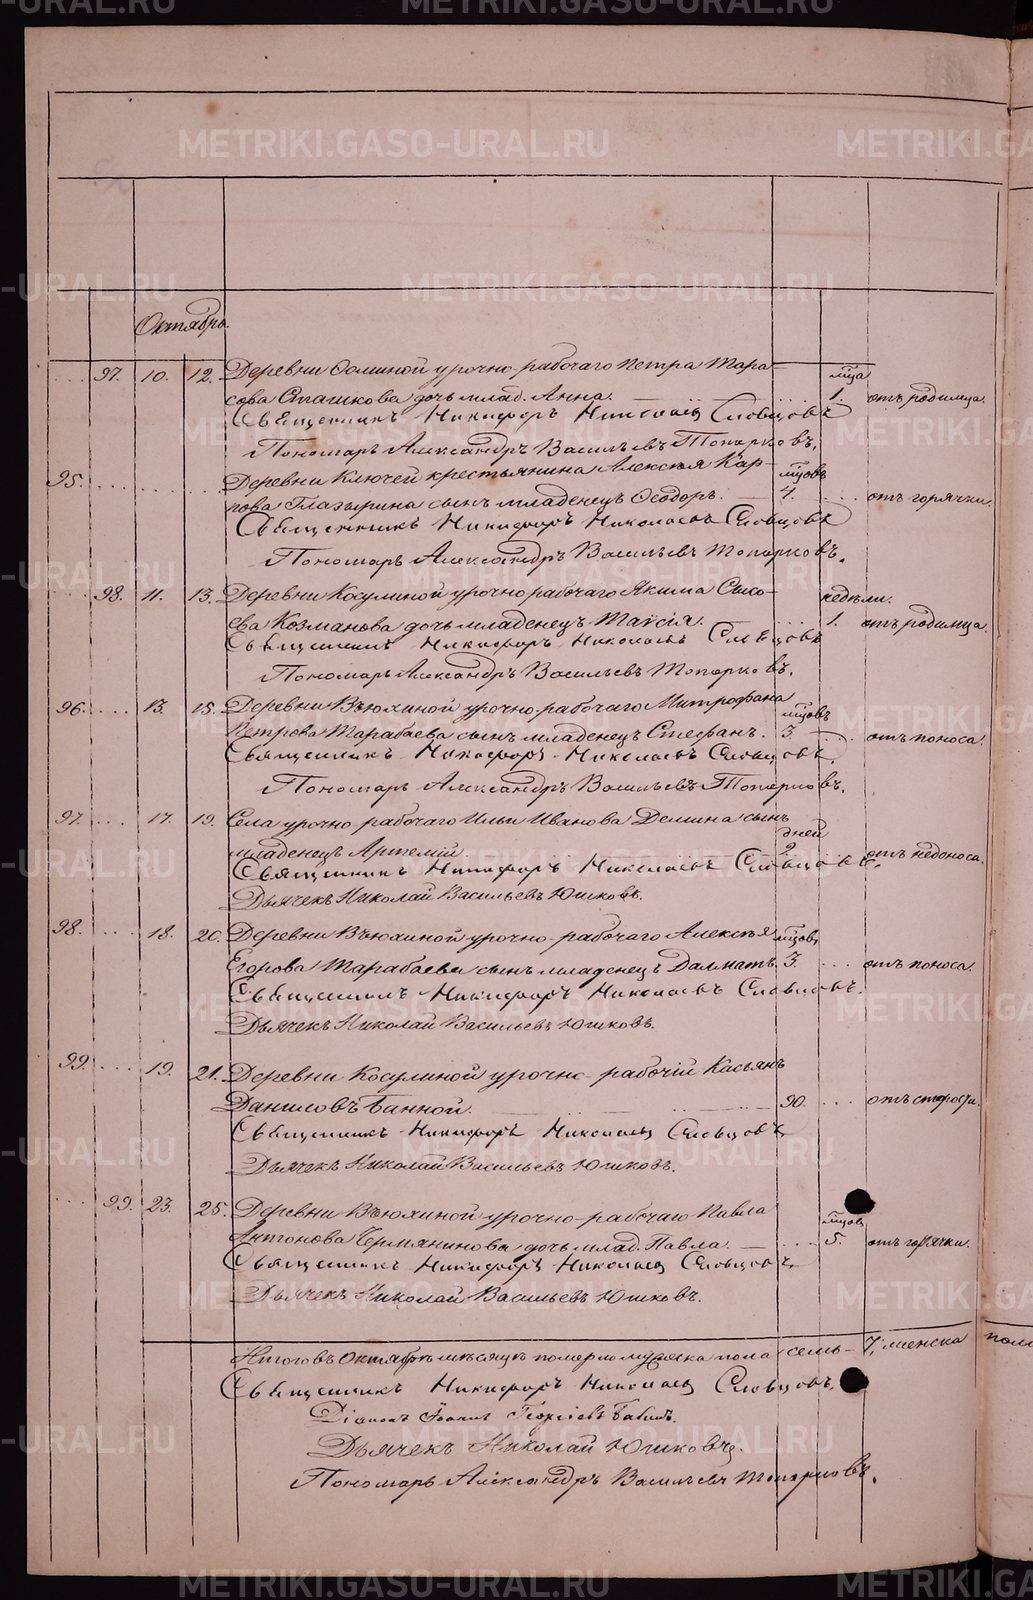 METRIKI.GASO-URAL.RU
Октябрь.
97. 10. 12. Деревни Осиной урочно-рабочаго Петра Тара-
сова Сташкова дочь млад. Анна. мца 1. отъ родимца.
Священникъ Никифоръ Николаевъ Словцовъ
Пономарь Александръ Васильевъ Топорковъ.
95. Деревни Ключей крестьянина Алексѣя Кар-
пова Глазырина сынъ младенецъ Ѳеодоръ. мцовъ 4. отъ горячки.
Священникъ Никифоръ Николаевъ Словцовъ
Пономарь Александръ Васильевъ Топорковъ.
98. 11. 13. Деревни Косулиной урочно рабочаго Якима Сысо-
ева Козманова дочь младенецъ Таисія. недѣли. 1. отъ родимца.
Священникъ Никифоръ Николаевъ Словцовъ
Пономарь Александръ Васильевъ Топорковъ.
96. 13. 15. Деревни Вьюхиной урочно-рабочаго Митрофана
Петрова Тарабаева сынъ младенецъ Стефанъ. мцовъ 3. отъ поноса.
Священникъ Никифоръ Николаевъ Словцовъ.
Пономарь Александръ Васильевъ Топорковъ.
97. 17. 19. Села урочно-рабочаго Ильи Иванова Демина сынъ
младенецъ Артемій. дней 2. отъ недоноса.
Священникъ Никифоръ Николаевъ Словцовъ.
Дьячекъ Николай Васильевъ Юшковъ.
98. 18. 20. Деревни Вьюхиной урочно-рабочаго Алексѣя
Егорова Тарабаева сынъ младенецъ Далматъ. мцовъ 3. отъ поноса.
Священникъ Никифоръ Николаевъ Словцовъ.
Дьячекъ Николай Васильевъ Юшковъ.
99. 19. 21. Деревни Косулиной урочно-рабочій Касьянъ
Даниловъ Банной. 90. отъ старости.
Священникъ Никифоръ Николаевъ Словцовъ
Дьячекъ Николай Васильевъ Юшковъ.
99. 23. 25. Деревни Вьюхиной урочно-рабочаго Павла
Антонова Чермянинова дочь млад. Павла. мцов. 5. отъ горячки.
Священникъ Никифоръ Николаевъ Словцовъ.
Дьячекъ Николай Васильевъ Юшковъ.
Итого въ Октябрѣ мѣсяцѣ померло мужеска пола семь - 7, женска пола
Священникъ Никифоръ Николаевъ Словцовъ.
Діаконъ Іоаннъ Георгіевъ Бабинъ.
Дьячекъ Николай Юшковъ.
Пономарь Александръ Васильевъ Топорковъ.